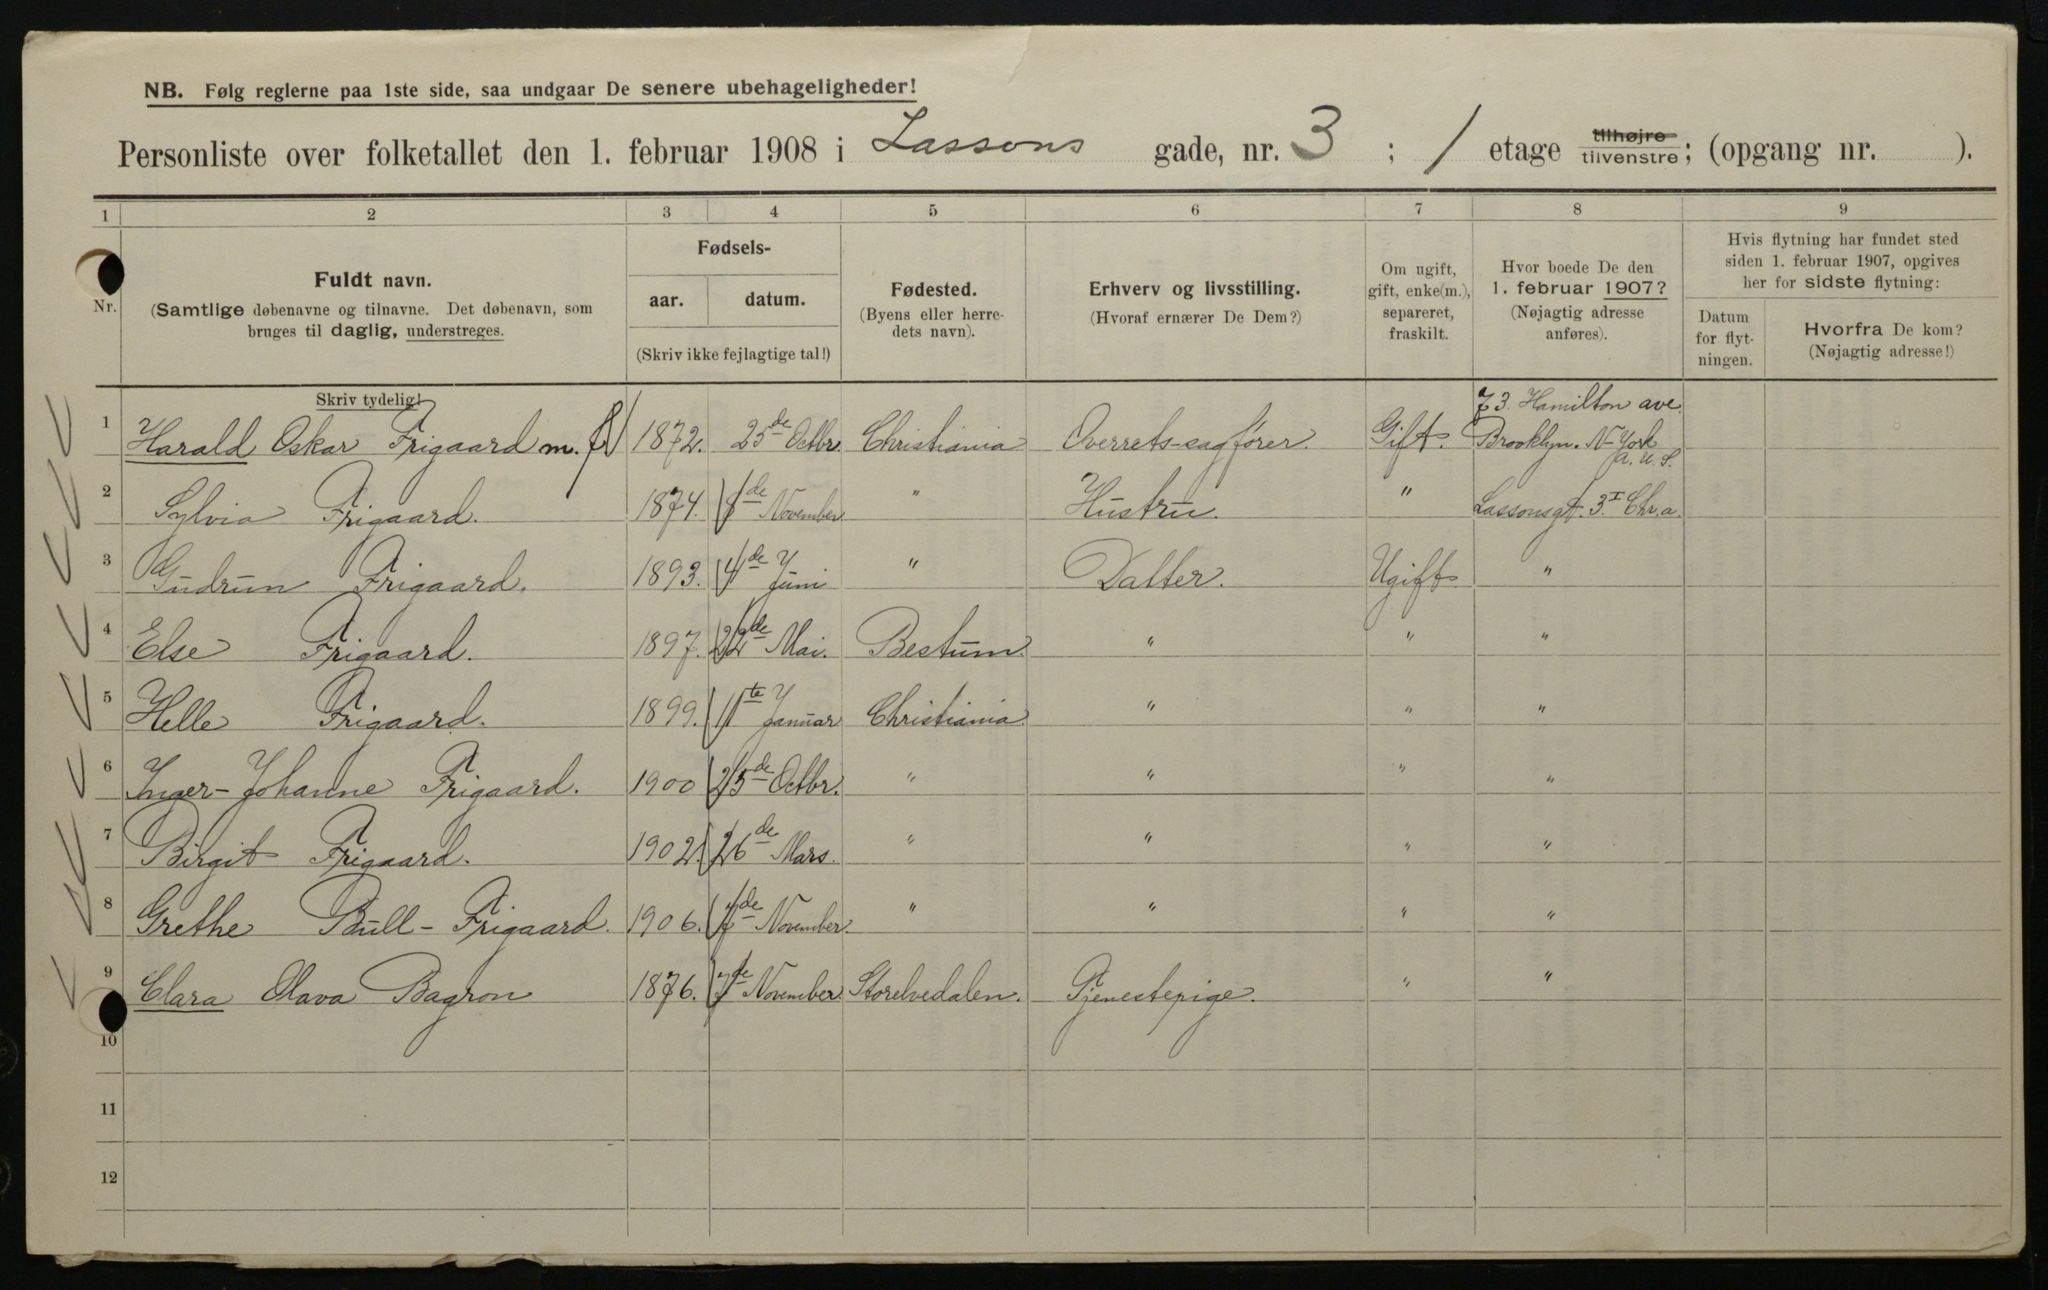 NB. Følg reglerne paa 1ste side, saa undgaar De senere ubehageligheder!
Personliste over folketallet den 1. februar 1908 i Lassons gade, nr. 3 ; 1 etage tilhøjre tilvenstre; (opgang nr. ).
1 2 3 4 5 6 7 8 9
Nr.
Fuldt navn.
(Samtlige døbenavne og tilnavne. Det døbenavn, som
bruges til daglig, understreges.
Fødsels-
aar. datum.
(Skriv ikke fejlagtige tal!)
Fødested.
(Byens eller herre-
dets navn).
Erhverv og livsstilling.
(Hvoraf ernærer De Dem?)
Om ugift,
gift, enke(m.),
separeret,
fraskilt.
Hvor boede De den
1. februar 1907?
(Nøjagtig adresse
anføres).
Hvis flytning har fundet sted
siden 1. februar 1907, opgives
her for sidste flytning:
Datum
for flyt-
ningen.
Hvorfra De kom?
(Nøjagtig adresse!)
Skriv tydelig!
1 Harald Oskar Frigaard m. 1872. 25de Octbr. Christiania Overrets-sagfører. Gift. 73. Hamilton ave.
Brooklyn. N-York
a. U. S.
2 Sylvia Frigaard. 1874. 8de November " Hustru. " Lassonsgt. 3.I Chr.a.
3 Gudrun Frigaard. 1893. 4de Juni " Datter. Ugift "
4 Else Frigaard. 1897. 22de Mai. Bestum. " " "
5 Helle Frigaard. 1899. 11te Januar Christiania " " "
6 Inger-Johanne Frigaard. 1900 25de Octbr. " " " "
7 Birgit Frigaard. 1902. 26de Mars. " " " "
8 Grethe Bull-Frigaard. 1906. 7de November. " " " "
9 Clara Olava Bagron 1876. 7de November Storelvedalen. Tjenestepige. " "
10
11
12